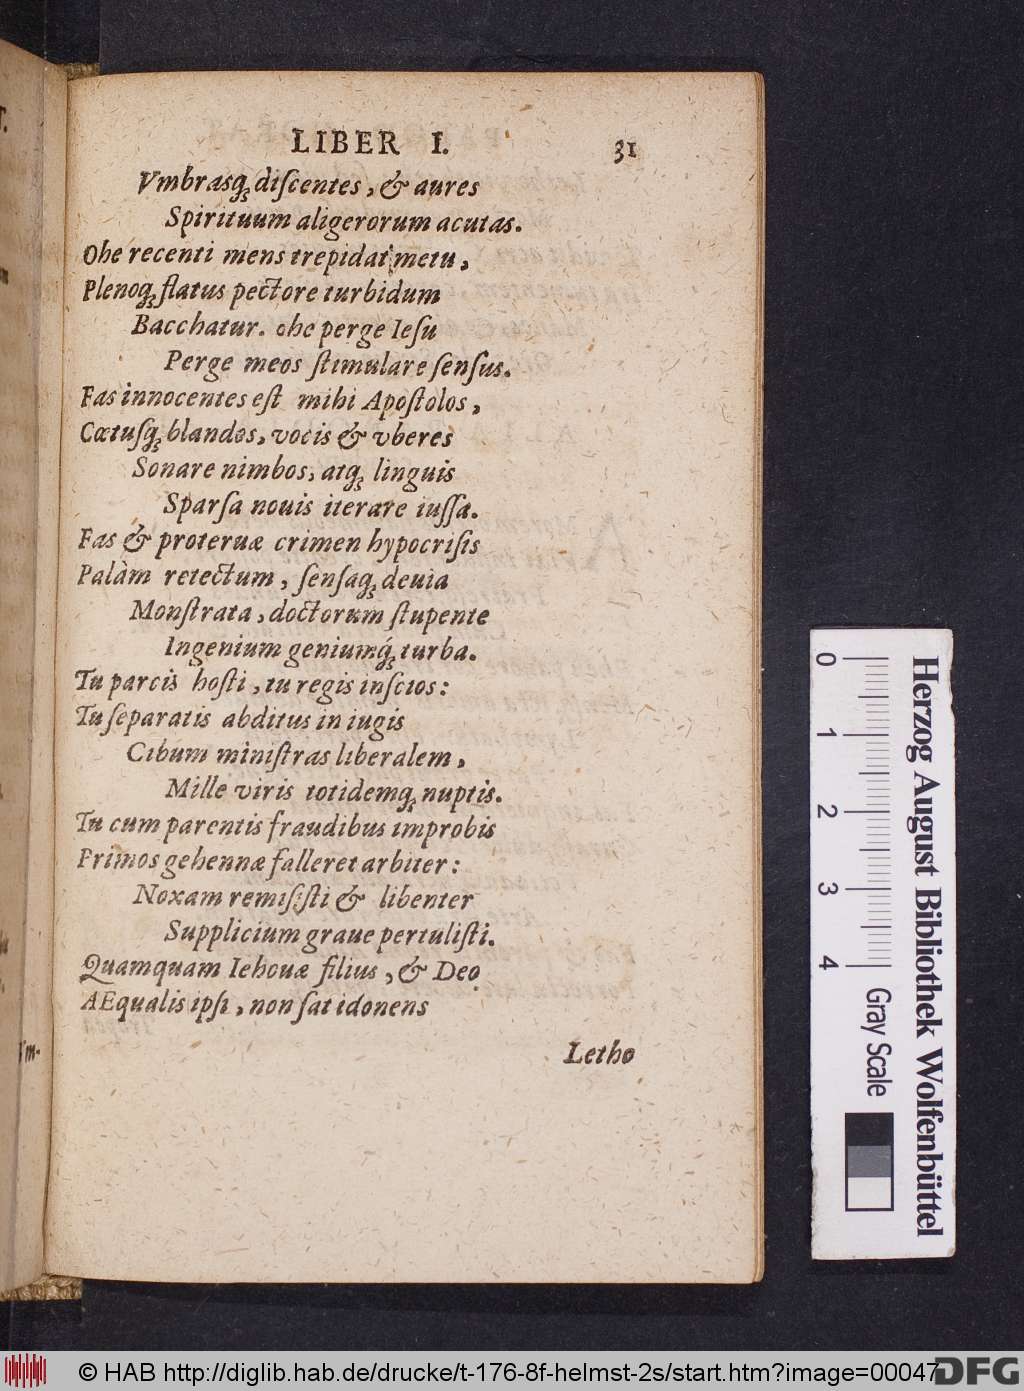 LIBER I. 31
Vmbrasq́; diſcentes, & aures
Spirituum aligerorum acutas.
Ohe recenti mens trepidat metu,
Plenoq́; flatus pectore turbidum
Bacchatur. ohe perge Ieſu
Perge meos ſtimulare ſenſus.
Fas innocentes eſt mihi Apoſtolos,
Cœtuſq́; blandos, vocis & vberes
Sonare nimbos, atq́; linguis
Sparſa nouis iterare iuſſa.
Fas & proteruæ crimen hypocriſis
Palàm retectum, ſenſaq́; deuia
Monſtrata, doctorum ſtupente
Ingenium geniumq́; turba.
Tu parcis hoſti, tu regis inſcios:
Tu ſeparatis abditus in iugis
Cibum miniſtras liberalem,
Mille viris totidemq́; nuptis.
Tu cum parentis fraudibus improbis
Primos gehennæ falleret arbiter:
Noxam remiſiſti & libenter
Supplicium graue pertuliſti.
Quamquam Iehouæ filius, & Deo
AEqualis ipſi, non ſat idonens
Letho
Herzog August Bibliothek Wolfenbüttel
0 1 2 3 4 Gray Scale
© HAB http://diglib.hab.de/drucke/t-176-8f-helmst-2s/start.htm?image=00047
DFG